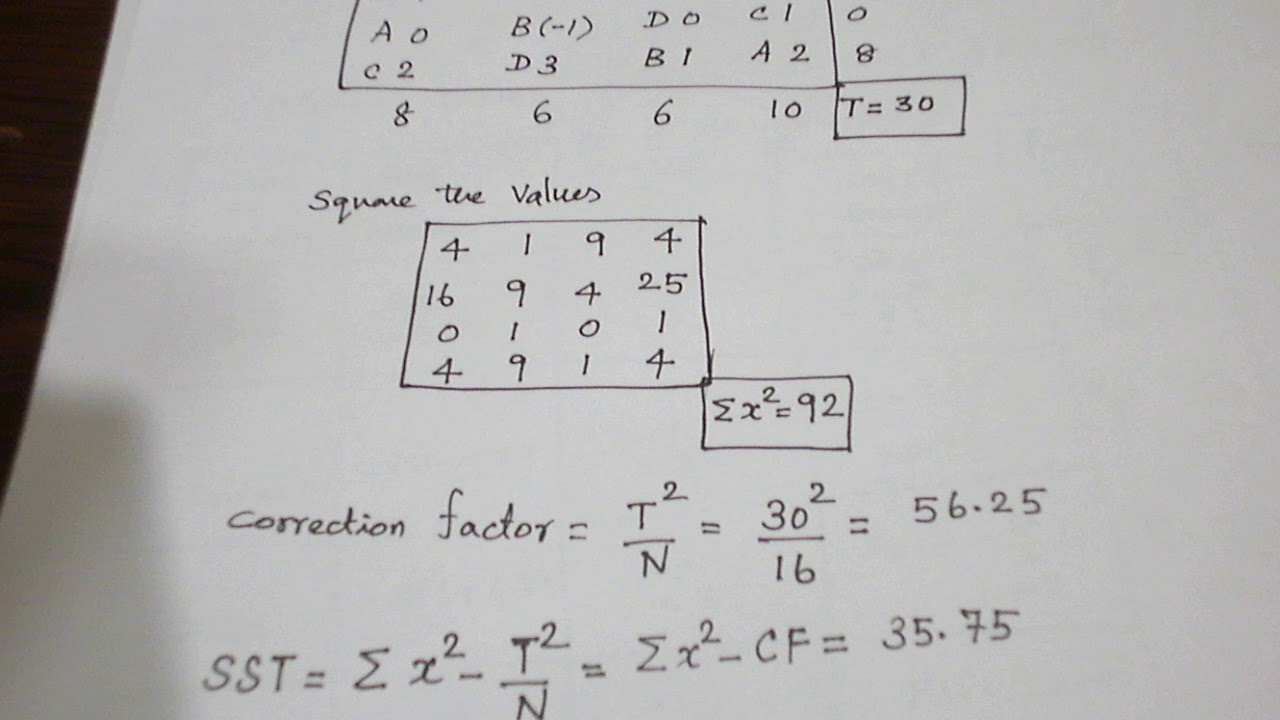 A 0 B(-1) D 0 C 1 0
C 2 D 3 B 1 A 2 8
8 6 6 10 T = 30
Square the Values
4 1 9 4
16 9 4 25
0 1 0 1
4 9 1 4
Σx²=92
Correction factor = T²/N = 30²/16 = 56.25
SST = Σx² - T²/N = Σx² - CF = 35.75